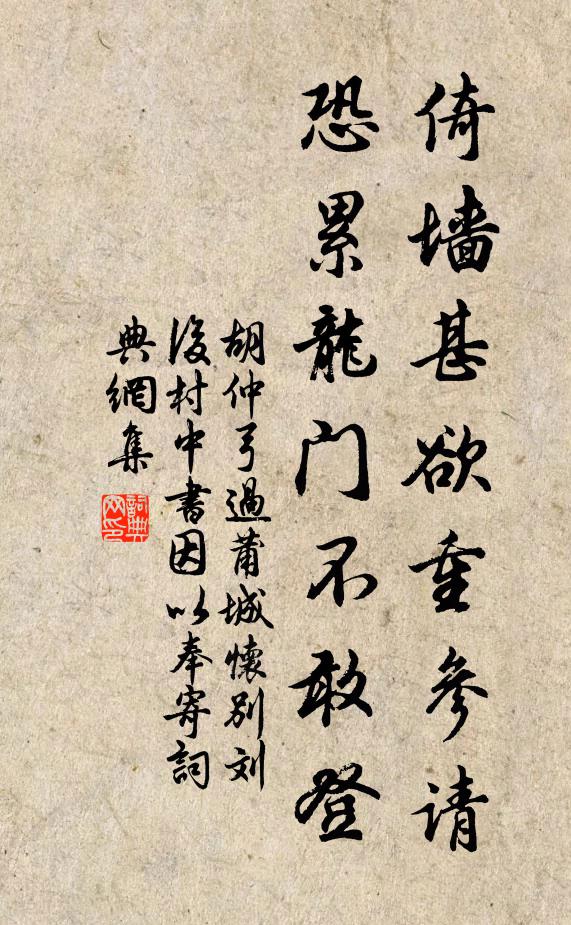 倚墙甚欲重参请
恐累龍门不敢登
胡仲弓過莆城懷别刘
後村中書因以奉寄詞
典網集
詞典网印